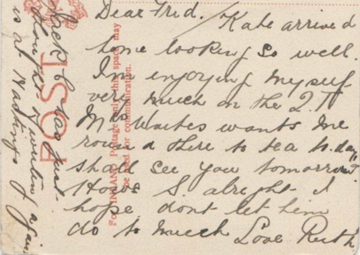 Dear Fred. Kate arrived
home looking so well.
I'm enjoying myself
very much on the Q.T
Mrs Waites wants me
round there to tea to-day
shall see you tomorrow
Hows S. alright I
hope dont let him
do to much Love Ruth
POST
For INLAND Postage only this space may
be used for communication.
Jack
at Hastings again